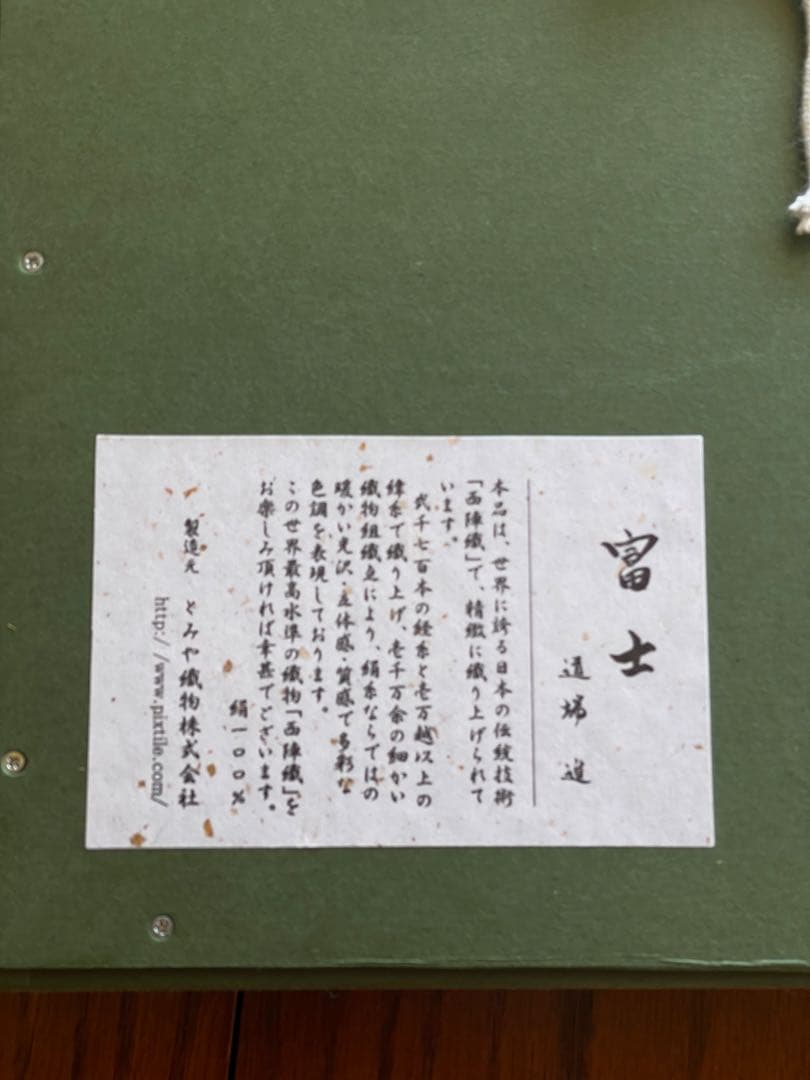 富士
道場 進
本品は、世界に誇る日本の伝統技術
「西陣織」で、精緻に織り上げられて
います。
弐千七百本の経糸と壱万越以上の
緯糸で織り上げ、壱千万余の細かい
織物組織点により、絹糸ならではの
暖かい光沢・立体感・質感で多彩な
色調を表現しております。
この世界最高水準の織物「西陣織」を
お楽しみ頂ければ幸甚でございます。
絹一〇〇%
製造元 とみや織物株式会社
http://www.pixtile.com/